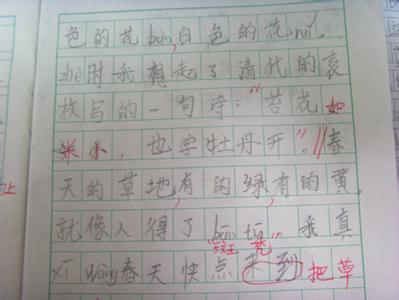 色的花bàn,白色的花ruǐ。
zhè时我想起了清代的袁
枚写的一句诗:“苔花如
米小,也学牡丹开”。‖春
天的草地,有的绿,有的黄,
就像人得了bān tū。我真
斑 秃
xī wàng春天快点来到把草